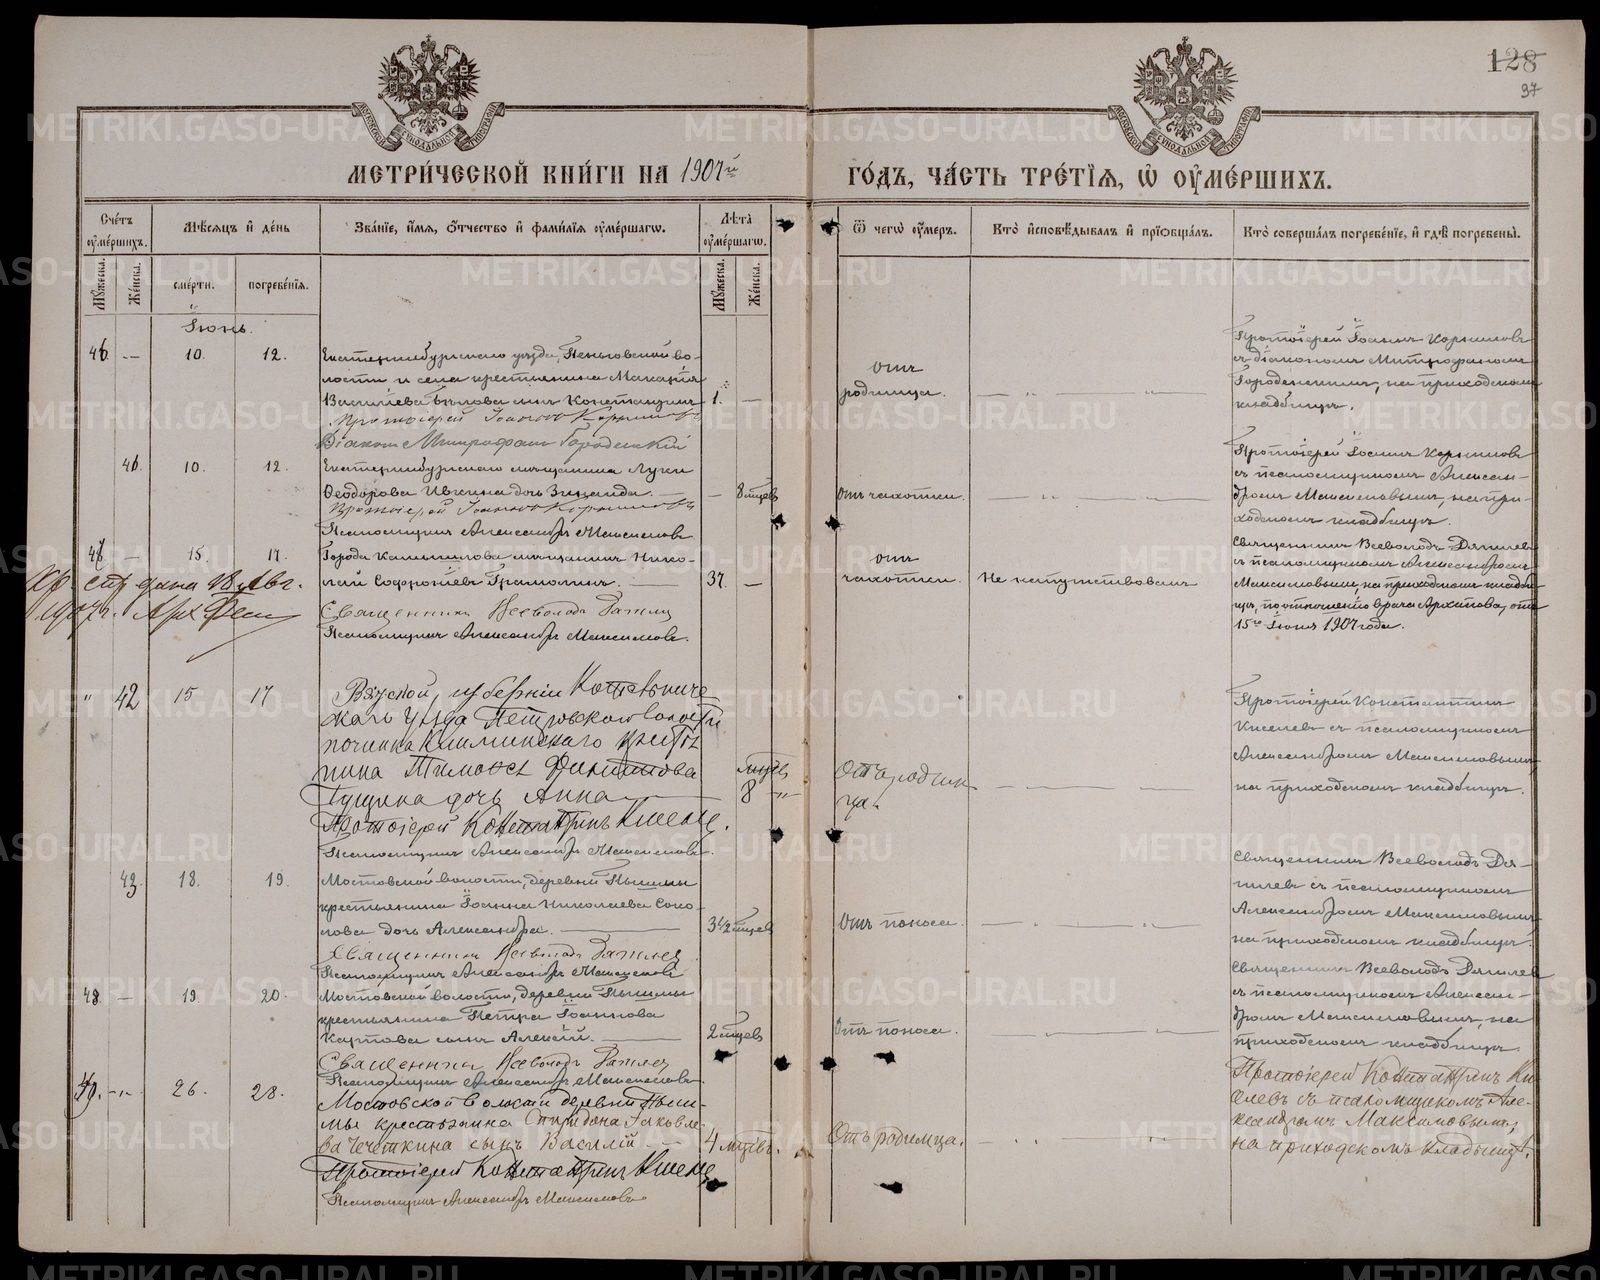 128
97
МЕТРИ́ЧЕСКОЙ КНИ́ГИ НА 1907й ГО́ДЪ, ЧА́СТЬ ТРЕ́ТІѦ, Ѽ ОУМЕ́РШИХЪ.
Сче́тъ оуме́ршихъ.
Мѣ́сяцъ и де́нь
Зва́нїе, и́мѧ, ѻ́тчество и фами́лїѧ оуме́ршагѡ.
Лѣта̀ оуме́ршагѡ.
Ѿ чегѡ̀ оу́меръ.
Кто̀ и҆сповѣ́дывалъ и҆ прїѡбща́лъ.
Кто̀ соверша́лъ погребе́нїе, и҆ гдѣ̀ погребены̀.
Му́жеска.
Же́нска.
сме́рти.
погребе́нїѧ.
Му́жеска.
Же́нска.
Іюнь.
46. — 10. 12.
Екатеринбургскаго уѣзда, во-
лости и села крестьянина Макарія
Васильева Бѣлова сынъ Константинъ
Протоіерей Іоаннъ Корниловъ
Діаконъ Митрофанъ Городенскій
1. —
отъ
родимца.
Протоіерей Іоаннъ Корниловъ
съ діакономъ Митрофаномъ
Городенскимъ, на приходскомъ
кладбищѣ.
41. 10. 12.
Екатеринбургскаго мѣщанина Луки
Ѳеодорова дочь Зинаида.
Протоіерей Іоаннъ Корниловъ
Псаломщикъ Александръ Максимовъ
— 8 мцев
отъ чахотки.
Протоіерей Іоаннъ Корниловъ
съ псаломщикомъ Алексан-
дромъ Максимовымъ, на при-
ходскомъ кладбищѣ.
47. — 15. 17.
Города Камышлова мѣщанинъ Нико-
лай Софроніевъ
Священникъ Всеволодъ
Псаломщикъ Александръ Максимовъ.
37. —
отъ
чахотки.
Не напутствованъ
Священникъ Всеволодъ
съ псаломщикомъ Александромъ
Максимовымъ, на приходскомъ кладби-
щѣ, по отношенію врача Архипова, отъ
15го Іюня 1907 года.
дана 18 Авг.
1907 г.
" 42 15 17
Вятской губерніи Котельниче
скаго уѣзда Петровской волости
починка Климинскаго кресть
янина Тимоѳея Филиппова
дочь Анна
Протоіерей Константинъ
Псаломщикъ Александръ Максимовъ.
мцев
8
Отъ родим
ца.
Протоіерей Константинъ
съ псаломщикомъ
Александромъ Максимовымъ,
на приходскомъ кладбищѣ.
43. 18. 19.
Мостовской волости, деревни Пышмы
крестьянина Іоанна Николаева Соко-
лова дочь Александра.
Священникъ Всеволодъ
Псаломщикъ Александръ Максимовъ
3 1/2 мцев
Отъ поноса.
Священникъ Всеволодъ
съ псаломщикомъ
Александромъ Максимовымъ
на приходскомъ кладбищѣ.
48. — 19. 20.
Мостовской волости, деревни Пышмы
крестьянина Петра Іоаннова
Картова сынъ Алексій.
Священникъ Всеволодъ
Псаломщикъ Александръ Максимовъ
2 мцев
Отъ поноса.
Священникъ Всеволодъ
съ псаломщикомъ Алексан-
дромъ Максимовымъ, на
приходскомъ кладбищѣ.
49. 26. 28.
Мостовской волости деревни Пыш-
мы крестьянина Спиридона Іаковле-
ва Чечеткина сынъ Василій
Протоіерей Константинъ
Псаломщикъ Александръ Максимовъ
4 мцевъ.
Отъ родимца.
Протоіерей Константинъ
съ псаломщикомъ Але-
ксандромъ Максимовымъ,
на приходскомъ кладбищѣ.
METRIKI.GASO-URAL.RU